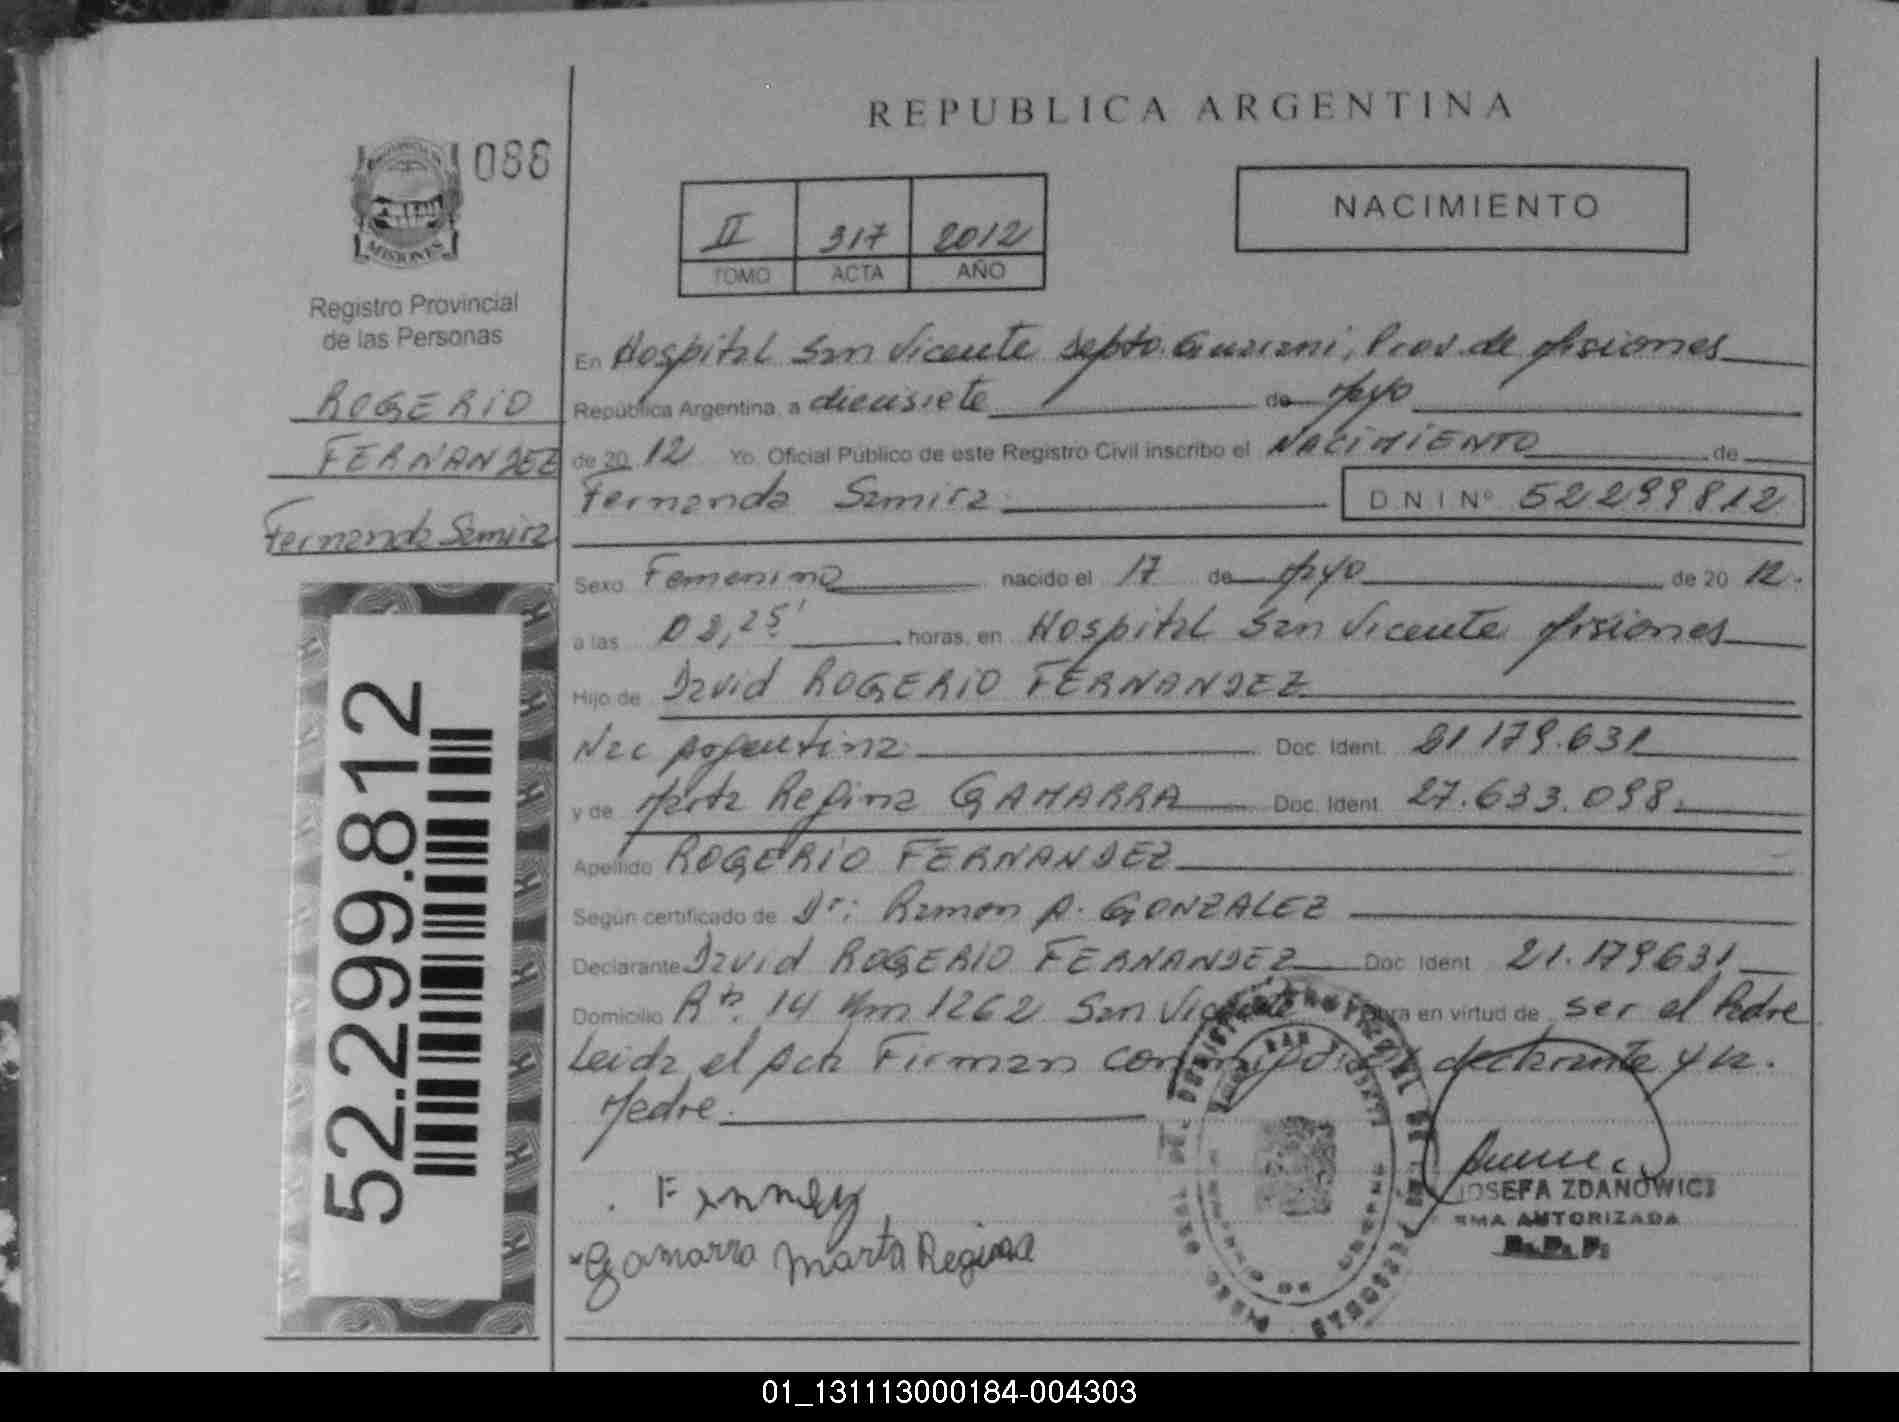 REPUBLICA ARGENTINA
088
MISIONES
Registro Provincial
de las Personas
ROGERIO
FERNANDEZ
Fernanda Samira
52.299.812
II 317 2012
TOMO ACTA AÑO
NACIMIENTO
En Hospital San Vicente Depto. Guarani, Prov. de Misiones
República Argentina, a diecisiete de Mayo
de 2012 Yo, Oficial Público de este Registro Civil inscribo el NACIMIENTO de
Fernanda Samira D N I Nº 52299812
Sexo Femenino nacido el 17 de Mayo de 2012.
a las 02,25' horas, en Hospital San Vicente Misiones
Hijo de David ROGERIO FERNANDEZ
Nac Argentina Doc. Ident. 21.179.631
y de Marta Regina GAMARRA Doc. Ident. 27.633.098.
Apellido ROGERIO FERNANDEZ
Según certificado de Dr: Ramon A. GONZALEZ
Declarante David ROGERIO FERNANDEZ Doc. Ident. 21.179631
Domicilio Rta. 14 Km 1262 San Vicente Obra en virtud de ser el Padre
Leida el Acta Firman conmigo el declarante y la.
Madre.
Gamarra Marta Regina
JOSEFA ZDANOWICZ
FIRMA AUTORIZADA
R.P.P.
01_131113000184-004303